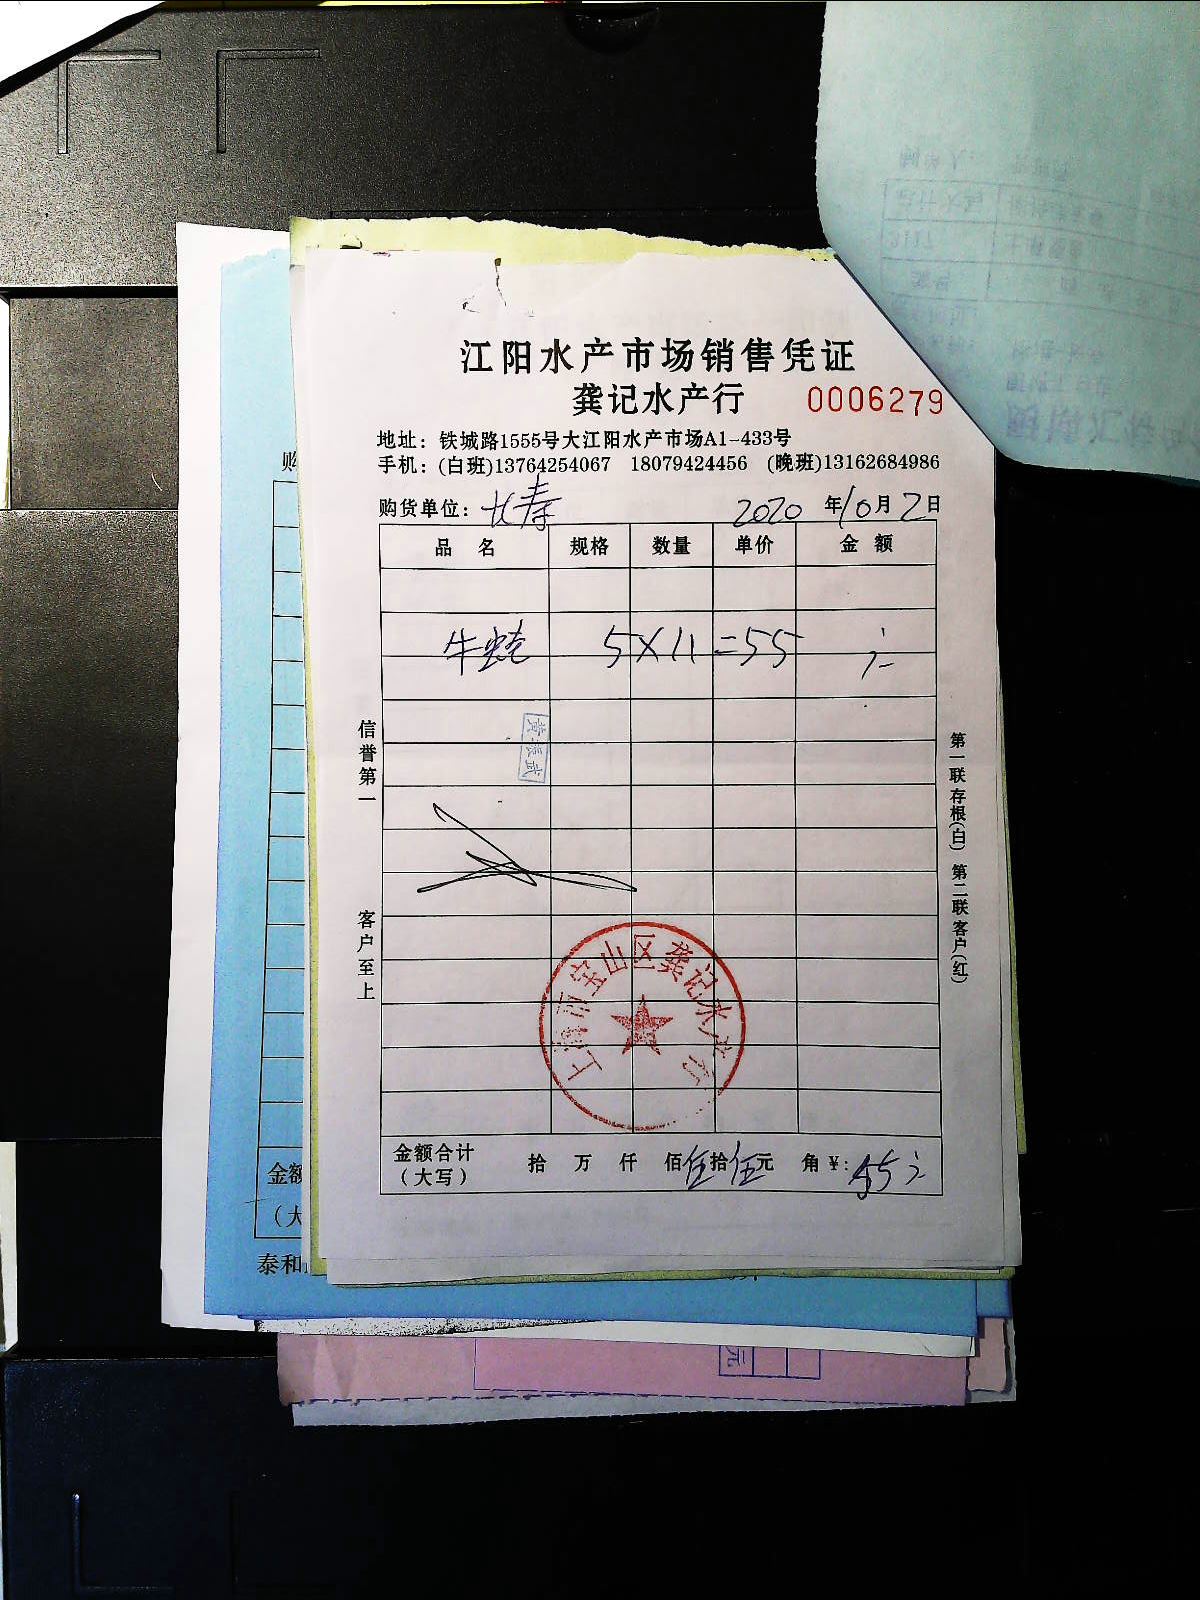 江阳水产市场销售凭证
龚记水产行 0006279
地址：铁城路1555号大江阳水产市场A1-433号
手机：(白班)13764254067 18079424456 (晚班)13162684986
购货单位：长寿 2020年10月2日
品名 规格 数量 单价 金额
牛蛙 5×11=55
信誉第一
客户至上
黄张武
上海市宝山区龚记水产行
第一联存根(白) 第二联客户(红)
金额合计 拾 万 仟 佰伍拾伍元 角 ¥：55
（大写）
购
金额
（大
泰和
元